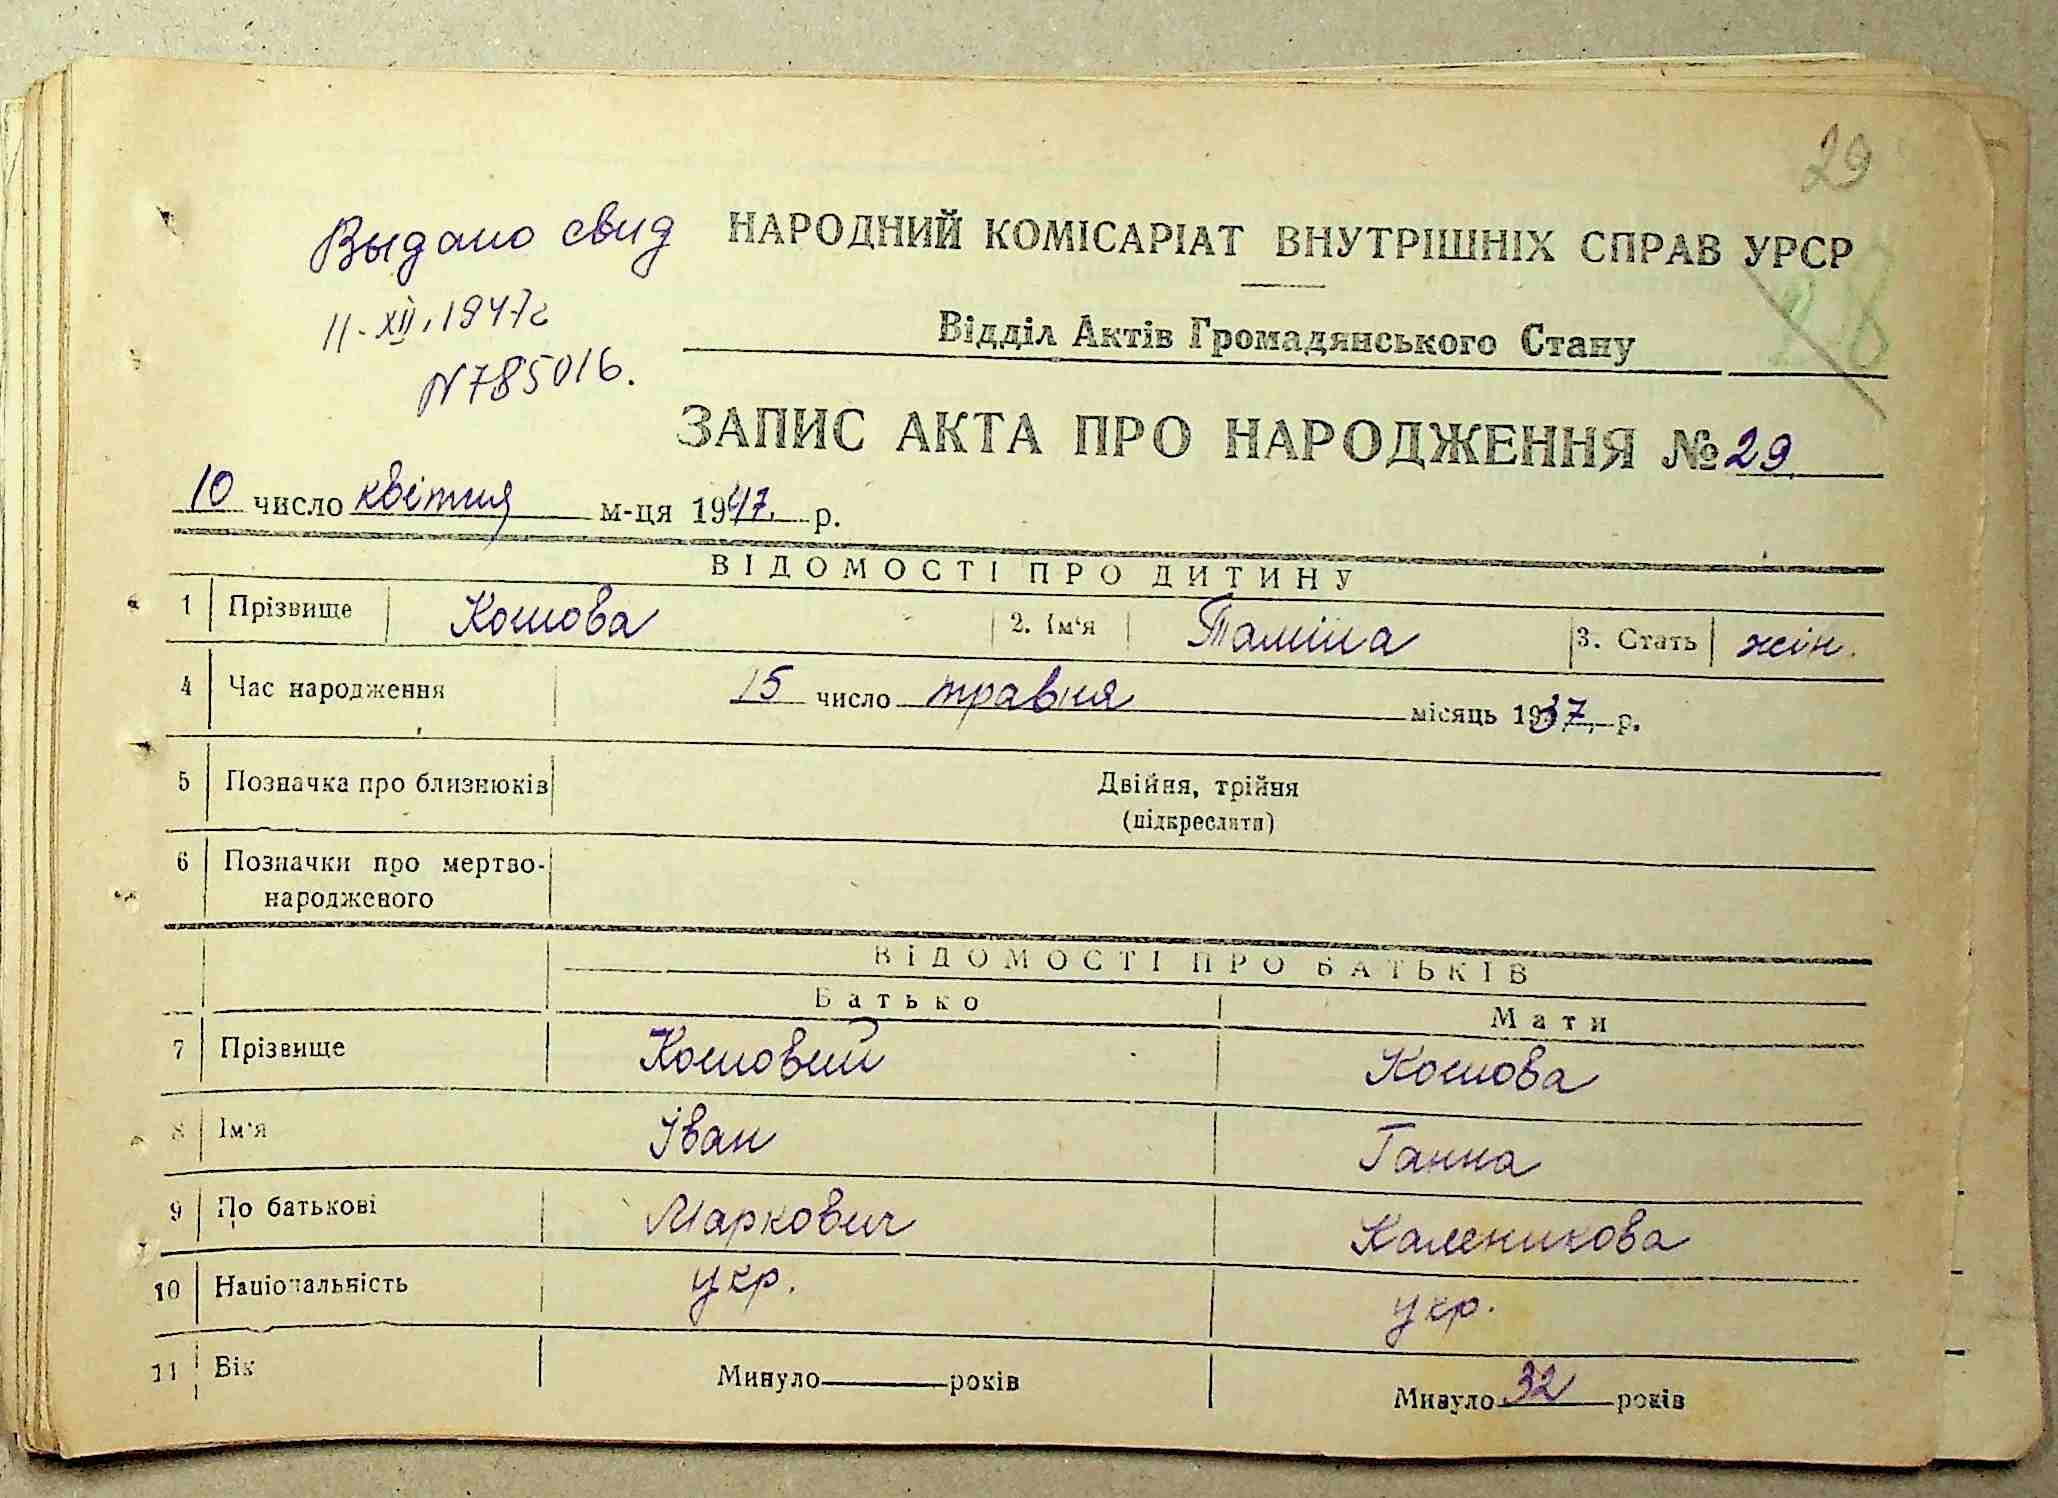 29
Выдано свид
НАРОДНИЙ КОМІСАРІАТ ВНУТРІШНІХ СПРАВ УРСР
11-XII, 1947г
N785016.
28
Відділ Актів Громадянського Стану
ЗАПИС АКТА ПРО НАРОДЖЕННЯ № 29
10 число квітня м-ця 1947. р.
ВІДОМОСТІ ПРО ДИТИНУ
1 Прізвище Кошова 2. Ім'я Таміла 3. Стать жін.
4 Час народження 15 число травня місяць 1937. р.
5 Позначка про близнюків Двійня, трійня
(підкреслити)
6 Позначки про мертво-
народженого
ВІДОМОСТІ ПРО БАТЬКІВ
Батько Мати
7 Прізвище Кошовий Кошова
8 Ім'я Іван Ганна
9 По батькові Маркович Каленикова
10 Національність укр. укр.
11 Вік Минуло років Минуло 32 років